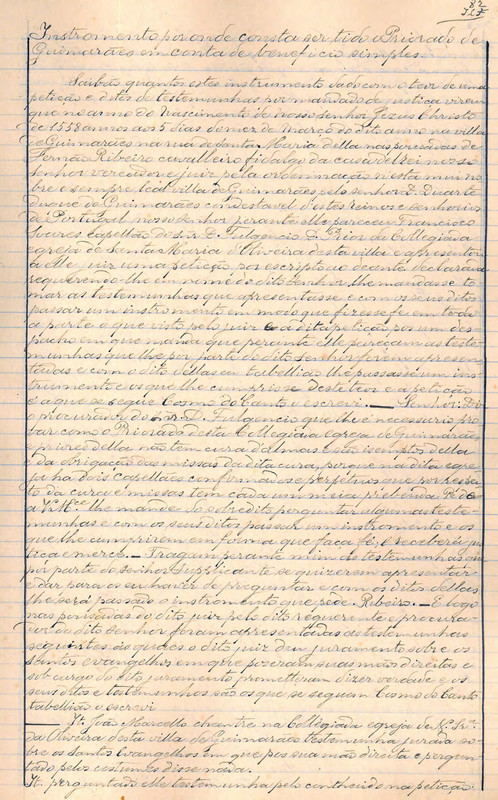 82
Instromento por onde consta ser tido o Priorado de
Guimarães em conta de beneficio simples.
Saibão quantos este instrumento dado com o teor de uma
petição e ditos de testemunhas por mandado de justiça virem
que no anno do Nascimento de nosso Senhor Jezus Christo
de 1558 annos aos 5 dias do mez de Março do dito anno na villa
de Guimarães na rua de Santa Maria della nas pousadas de
Fernão Ribeiro cavalleiro fidalgo da casa d'el rei nosso
senhor vereador e juiz pela ordennação nesta mui no
bre e sempre leal villa de Guimarães pelo senhor D. Duarte
duque de Guimarães condestavel d'estes reinos e senhorios
de Portugal nosso senhor perante elle pareceu Francisco
Soares capellão do snr. D. Fulgencio D. Prior da Collegiada
egreja de Santa Maria d'Oliveira desta villa e apresentou
a elle juiz uma petição por escripto ao deante declarada
requerendo-lhe em nome do dito Senhor lhe mandasse to
mar as testemunhas que apresentasse e com os seus ditos
passar um instromento em modo que fizesse fé em toda
a parte o que visto pelo juiz e a dita petição pos um des
pacho em que manda que perante elle pareçam as teste
munhas que lhe por parte do dito Senhor forem apresen
tadas e com o dito dellas eu tabellião lhe passasse um ins
trumento e os que lhe cumprisse deste teor e a petição
é a que se segue Cosmo do Canto o escrevi. — Senhor: Diz
o procurador do snr. D. Fulgencio que lhe é necessario pro
var como o Priorado desta Collegiada egreja de Guimarães
e priores della não tem cura d'almas e são isemptos della
e da obrigação das missas da dita cura, porque na dita egre
ja ha dois capellães confirmados e perpetuos que por respei
to da cura e missas tem cada um meia prebenda. Pede
a V. Mcê. lhe mande do sobredito perguntar algumas teste
munhas e com os seus ditos passar um instromento e os
que lhe cumprirem em forma que faça fé, e receberá jus
tiça e mercê. — Tragam perante mim as testemunhas que
por parte do senhor Supplicante se quizerem apresentar
e dar para os eu haver de preguntar e com os ditos dellas
lhe será passado o instromento que pede. Ribeiro. — E logo
nas pousadas do dito juiz pelo dito requerente e procura
dor do dito Senhor foram apresentadas as testemunhas
seguintes ás quaes o dito juiz deu juramento sobre os
Santos evangelhos em que poseram suas mãos direitas e
sob cargo do dito juramento prometteram dizer verdade e os
seus ditos e testemunhos são os que se seguem Cosmo do Canto
tabellião o escrevi
— It. João Marcello chantre na Collegiada egreja de N.ª Sr.ª
da Oliveira desta villa de Guimarães testemunha jurada so
bre os santos Evangelhos em que pos sua mão direita e pergun
tado pelos costumes disse nada.
It. perguntado elle testemunha pelo contheudo na petição